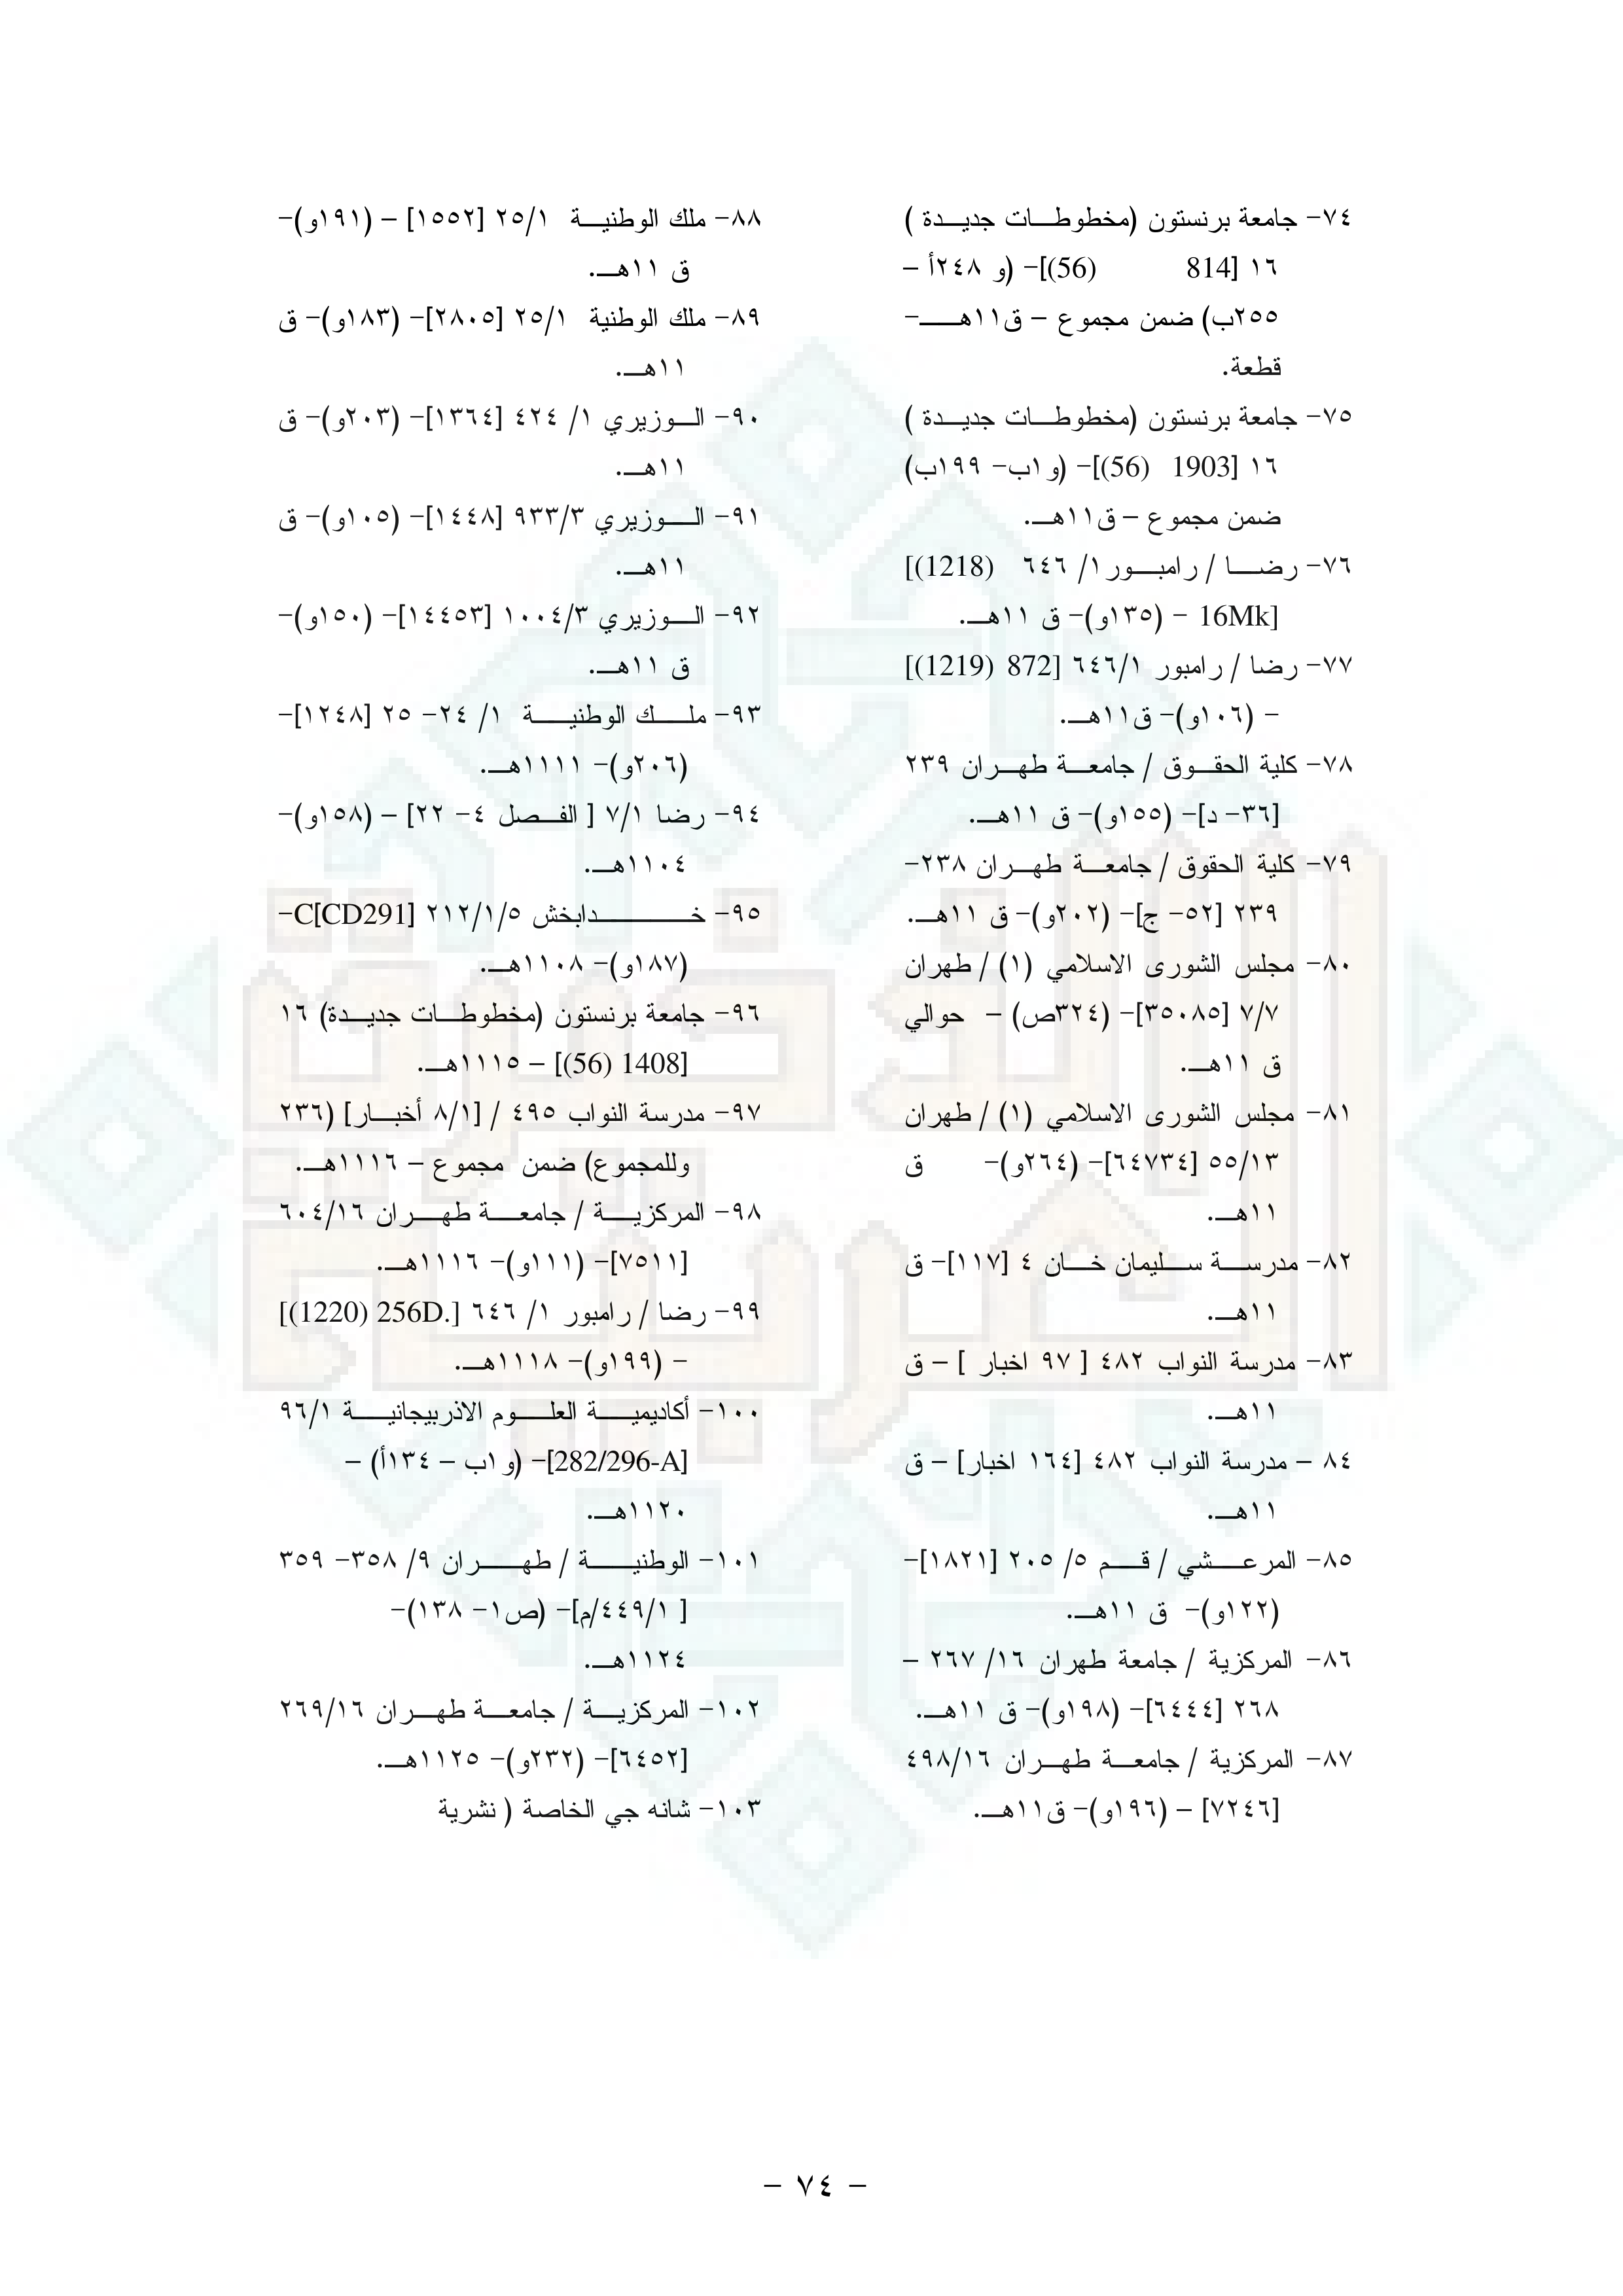 ٧٤- جامعة برنستون (مخطوطات جديدة )
١٦ [814 (56)]- (و ٢٤٨أ –
٢٥٥ب) ضمن مجموع – ق١١هـ-
قطعة.
٧٥- جامعة برنستون (مخطوطات جديدة )
١٦ [1903 (56)]- (و١ب- ١٩٩ب)
ضمن مجموع – ق١١هـ.
٧٦- رضا / رامبور١/ ٦٤٦ [(1218)
16Mk] - (١٣٥و)- ق ١١هـ.
٧٧- رضا / رامبور ٦٤٦/١ [872 (1219)]
- (١٠٦و)- ق١١هـ.
٧٨- كلية الحقوق / جامعة طهران ٢٣٩
[٣٦- د]- (١٥٥و)- ق ١١هـ.
٧٩- كلية الحقوق / جامعة طهران ٢٣٨-
٢٣٩ [٥٢- ج]- (٢٠٢و)- ق ١١هـ.
٨٠- مجلس الشورى الاسلامي (١) / طهران
٧/٧ [٣٥٠٨٥]- (٣٢٤ص) – حوالي
ق ١١هـ.
٨١- مجلس الشورى الاسلامي (١) / طهران
٥٥/١٣ [٦٤٧٣٤]- (٢٦٤و)- ق
١١هـ.
٨٢- مدرسة سليمان خان ٤ [١١٧]- ق
١١هـ.
٨٣- مدرسة النواب ٤٨٢ [ ٩٧ اخبار ] – ق
١١هـ.
٨٤ – مدرسة النواب ٤٨٢ [١٦٤ اخبار] – ق
١١هـ.
٨٥- المرعشي / قم ٥/ ٢٠٥ [١٨٢١]-
(١٢٢و)- ق ١١هـ.
٨٦- المركزية / جامعة طهران ١٦/ ٢٦٧ –
٢٦٨ [٦٤٤٤]- (١٩٨و)- ق ١١هـ.
٨٧- المركزية / جامعة طهران ٤٩٨/١٦
[٧٢٤٦] – (١٩٦و)- ق١١هـ.
٨٨- ملك الوطنية ٢٥/١ [١٥٥٢] – (١٩١و)-
ق ١١هـ.
٨٩- ملك الوطنية ٢٥/١ [٢٨٠٥]- (١٨٣و)- ق
١١هـ.
٩٠- الوزيري ١/ ٤٢٤ [١٣٦٤]- (٢٠٣و)- ق
١١هـ.
٩١- الوزيري ٩٣٣/٣ [١٤٤٨]- (١٠٥و)- ق
١١هـ.
٩٢- الوزيري ١٠٠٤/٣ [١٤٤٥٣]- (١٥٠و)-
ق ١١هـ.
٩٣- ملك الوطنية ١/ ٢٤- ٢٥ [١٢٤٨]-
(٢٠٦و)- ١١١١هـ.
٩٤- رضا ٧/١ [ الفصل ٤- ٢٢] – (١٥٨و)-
١١٠٤هـ.
٩٥- خدابخش ٢١٢/١/٥ C[CD291]-
(١٨٧و)- ١١٠٨هـ.
٩٦- جامعة برنستون (مخطوطات جديدة) ١٦
[1408 (56)] – ١١١٥هـ.
٩٧- مدرسة النواب ٤٩٥ / [٨/١ أخبار] (٢٣٦
وللمجموع) ضمن مجموع – ١١١٦هـ.
٩٨- المركزية / جامعة طهران ٦٠٤/١٦
[٧٥١١]- (١١١و)- ١١١٦هـ.
٩٩- رضا / رامبور ١/ ٦٤٦ [.256D (1220)]
- (١٩٩و)- ١١١٨هـ.
١٠٠- أكاديمية العلوم الاذربيجانية ٩٦/١
[282/296-A]- (و١ب – ١٣٤أ) –
١١٢٠هـ.
١٠١- الوطنية / طهران ٩/ ٣٥٨- ٣٥٩
[ ٤٤٩/١/م]- (ص١- ١٣٨)-
١١٢٤هـ.
١٠٢- المركزية / جامعة طهران ٢٦٩/١٦
[٦٤٥٢]- (٢٣٢و)- ١١٢٥هـ.
١٠٣- شانه جي الخاصة ( نشرية
- ٧٤ -